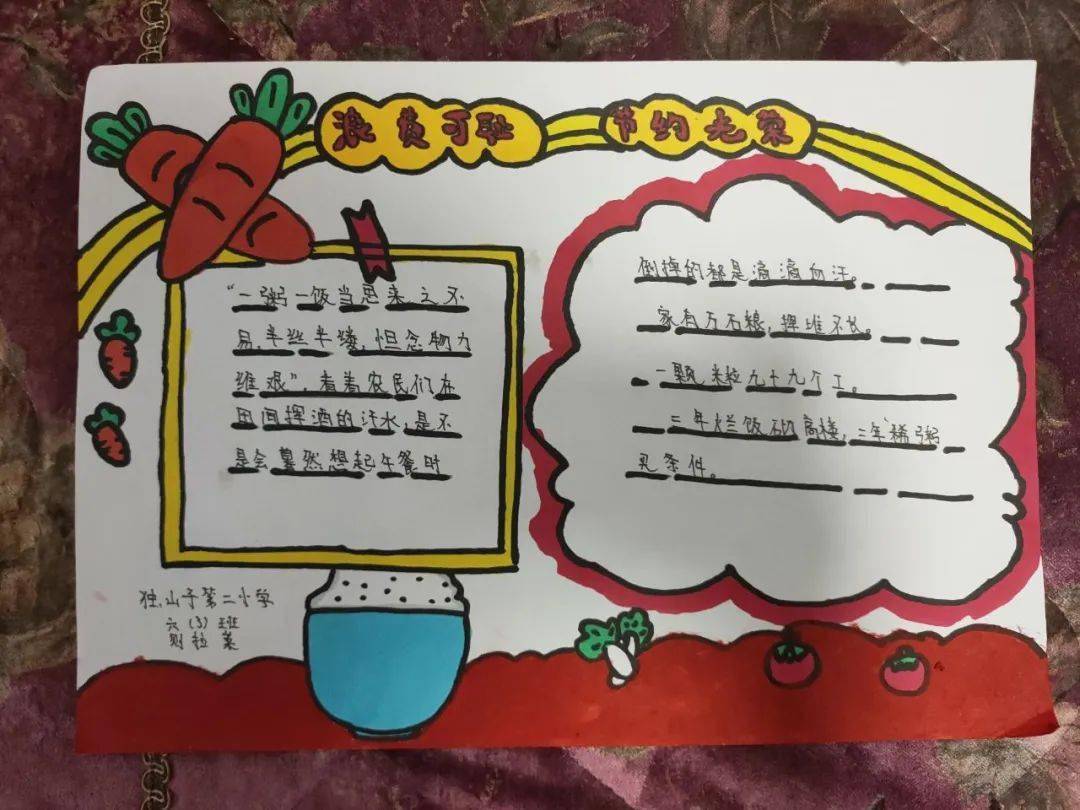 浪费可耻 节约光荣
“一粥一饭当思来之不
易,半丝半缕,恒念物力
维艰”,看着农民们在
田间挥洒的汗水,是不
是会蓦然想起午餐时
倒掉的都是滴滴血汗。
家有万石粮,挥堆不长。
一颗米粒九十九个工。
三年烂饭砌高楼,三年稀粥
买条件。
独山子第二小学
六(3)班